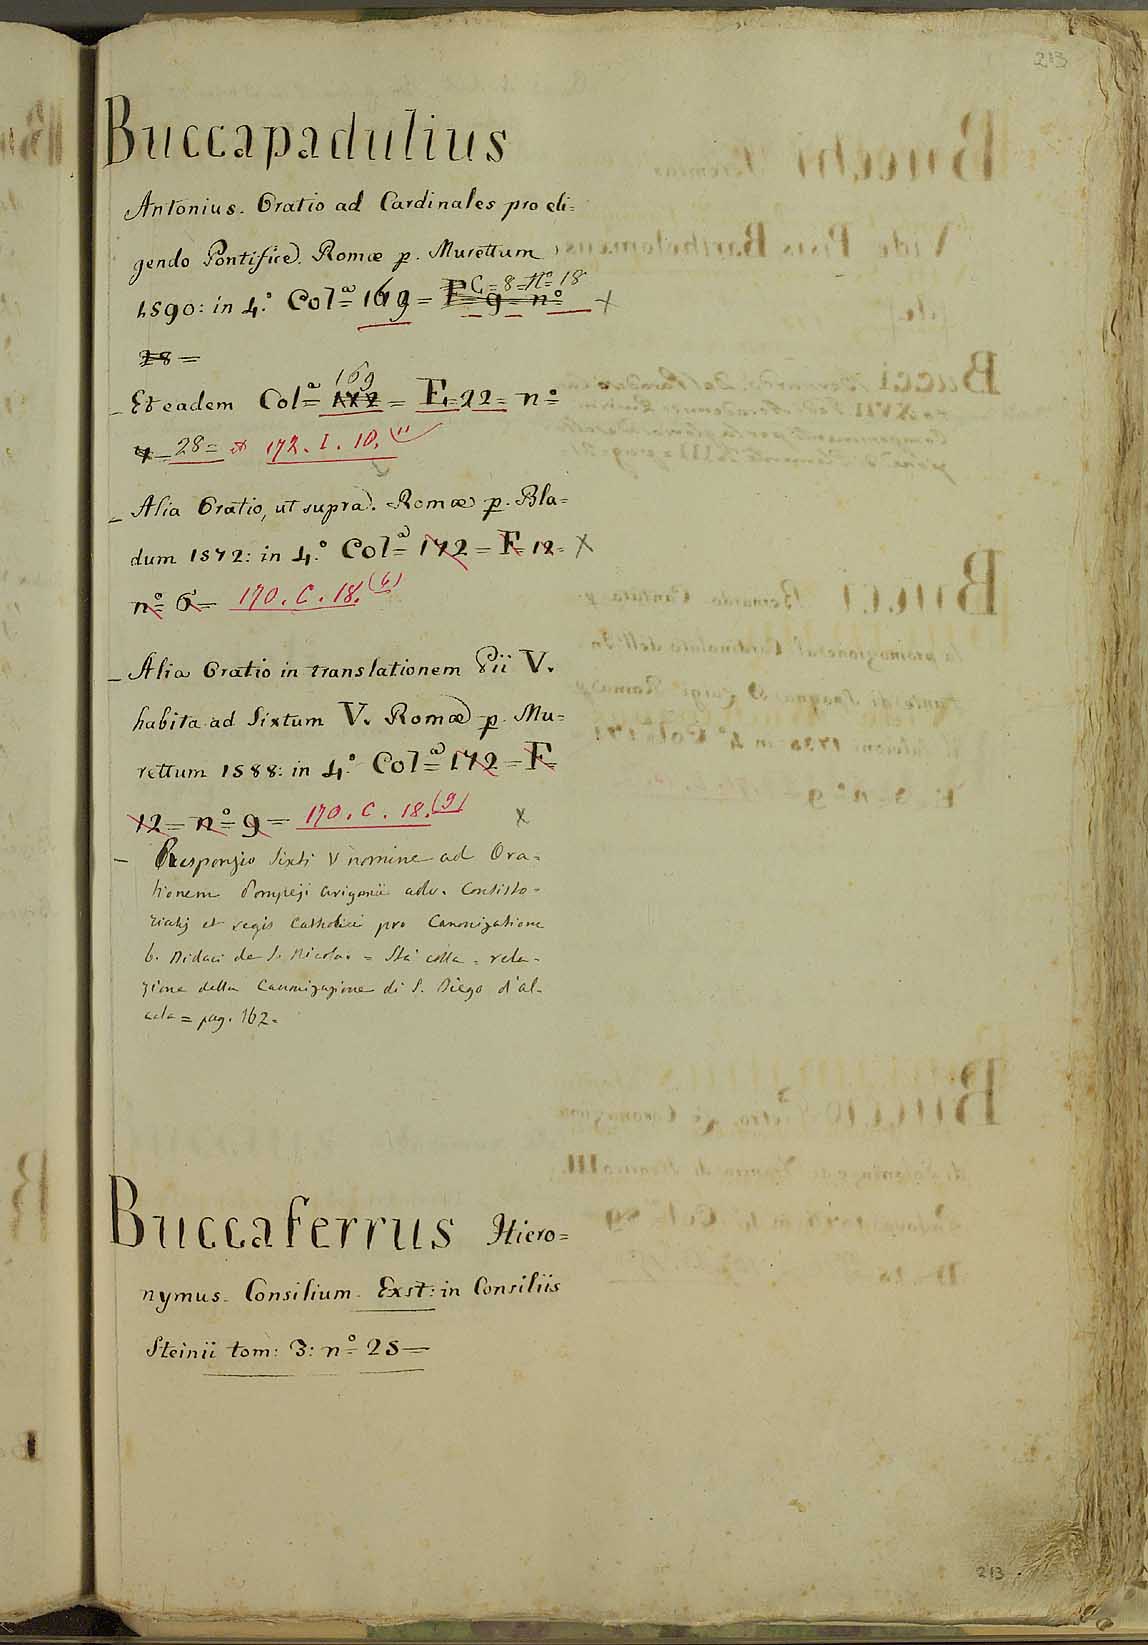 213
Buccapadulius
Antonius. Oratio ad Cardinales pro eli=
gendo Pontifice. Romæ p. Murettum
C=8=N.º 18
1590: in 4.º Col=ª 169= F= 9= nº= X
28=
169
_ Et eadem Col=ª 172= F.=22= n=º
4 28= et 172. I. 10. (11
_ Alia Oratio, ut supra. Romæ p. Bla=
dum 1572: in 4.º Col=ª 172= F 12= X
nº= 6= 170. C. 18. (6)
_ Alia Oratio in translationem Pii V.
habita ad Sixtum V. Romæ p. Mu=
rettum 1588: in 4.º Col=ª 172= F=
12= nº= 9= 170. C. 18. (9) X
_ Responsio Sixti V nomine ad Ora=
tionem Pompeji Arigonii adv. Consisto=
rialis et regis Catholici pro Canonizatione
b. Didaci de S. Nicolao = Sta colla = rela=
zione della Canonizazione di S. Diego d'al=
cala = pag. 162.
Buccaferrus Hiero=
nymus. Consilium. Exst: in Consiliis
Steinii tom: 3: nº= 25=
213